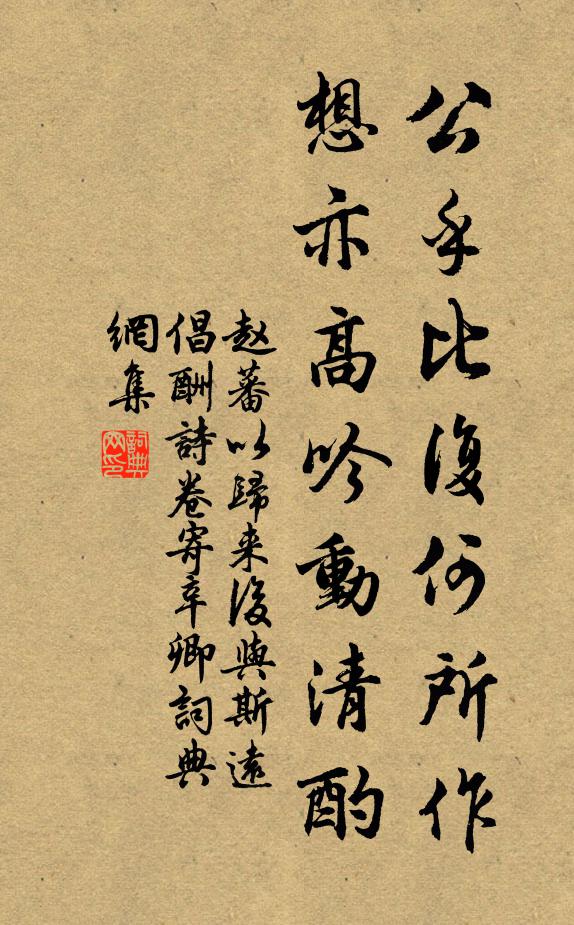 公乎比復何所作
想亦高吟動清酌
赵蕃以歸来後與斯遠
倡酬詩卷寄辛卿詞典
網集
詞典网印